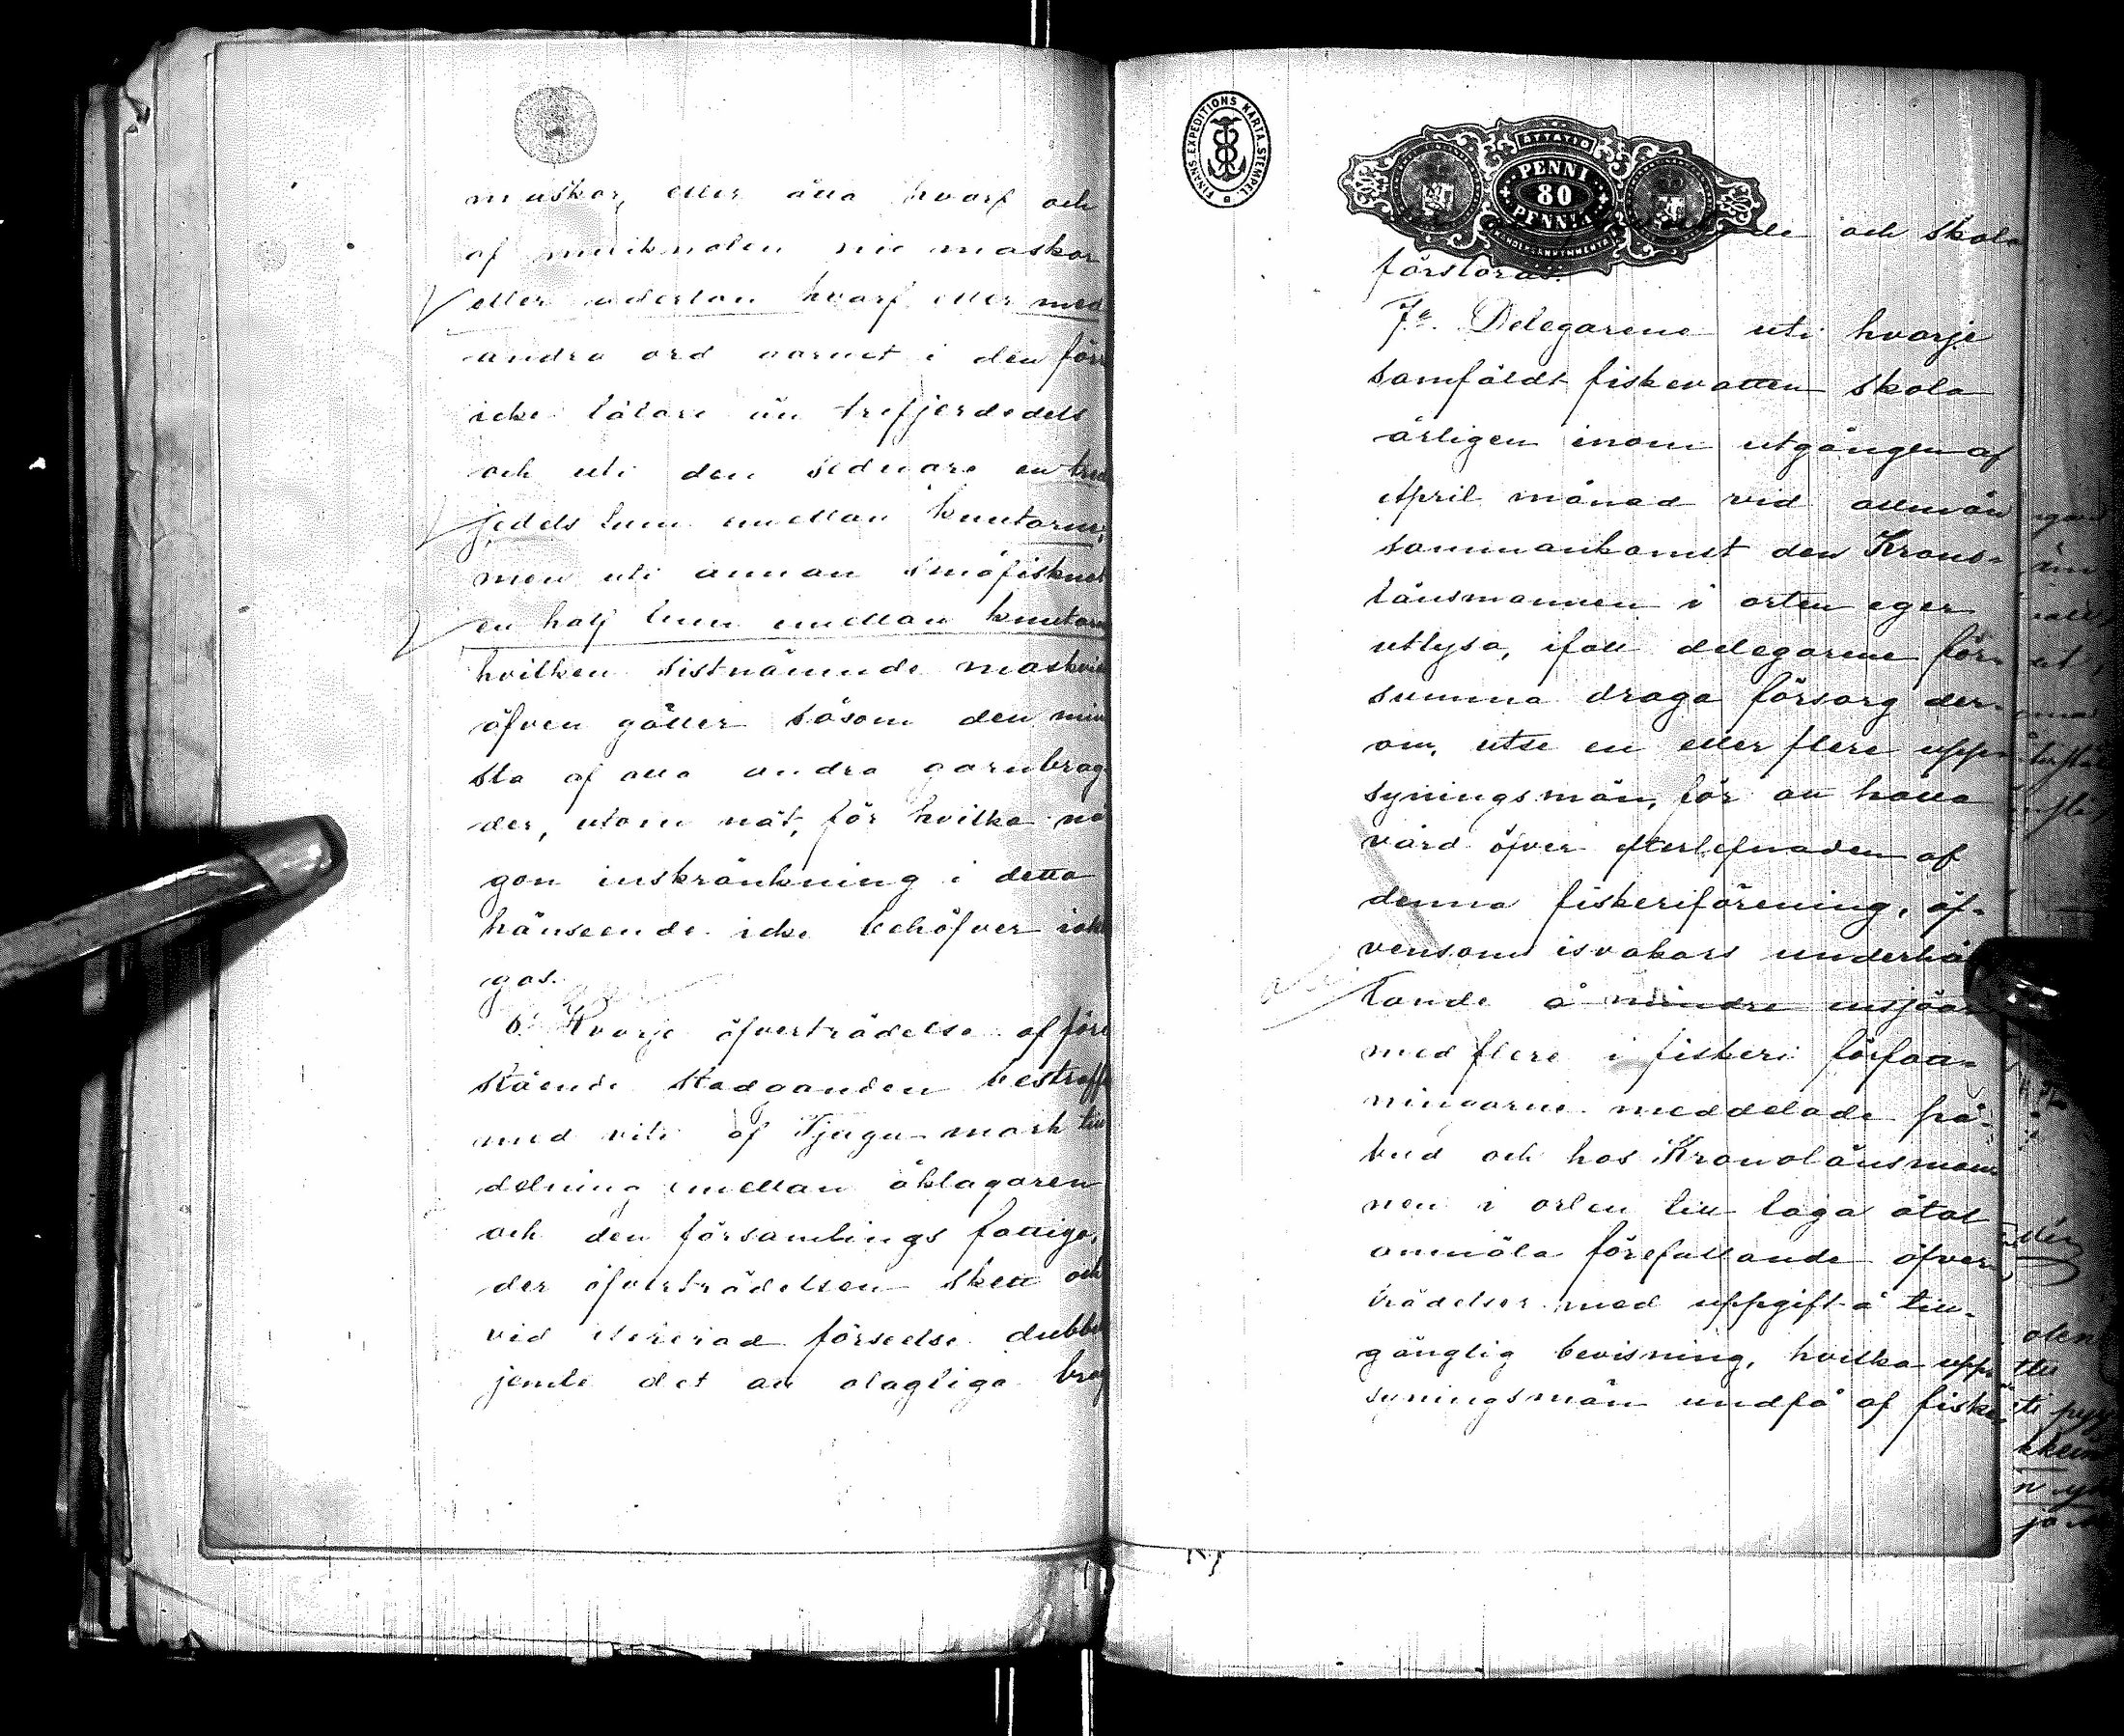 maskor, eller åtta hvarf och
af muiknoten nio maskor
eller aderton hvarf eller med
andra ord garnet i den för
icke tätare än trefjerdedels
och uti den sednare en tre
jedels tum emellan knutarne,
men uti annan småfisknot
en half tum emellan knutarn
hvilken sistnämnde maskvid
äfven gäller såsom den min
sta af alla andra garnbrag
der, utom nät, för hvilka nå
gon inskränkning i detta
hänseende icke behöfver iakt
gas.
6. Hvarje öfverträdelse af före
stående stadganden bestraff
med vite af Tjugu mark till
delning emellan åklagaren
och den församlings fattige,
der öfverträdelsen skett och
vid itererad förseelse dubbe
jemte det att olagliga brag
FINANS EXPEDITIONS KARTA STEMPEL
PENNI
80
PENNIÄ
och skola
förstöras.
7e. Delegarene uti hvarje
samfäldt fiskevatten skola
årligen inom utgången af
April månad vid allmän
sammankomst den Krono-
länsmannen i orten eger
utlysa, ifall delegarene för-
summa draga försorg der-
om, utse en eller flere upp-
syningsmän, för att hålla
vård öfver efterlefnaden af
denna fiskeriförening, äf-
vensom isvakars underhål
lande å mindre insjöar
med flere i fiskeri författ-
ningarne meddelade på-
bud och hos Kronolänsman
nen i orten till laga åtal
anmäla förefallande öfver
trädelser med uppgift å till-
gänglig bevisning, hvilka upp
syningsmän undfå af fiske